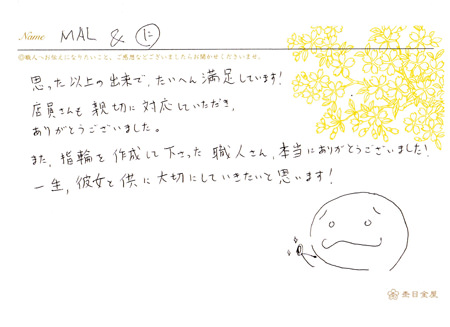 Name MAL & に
◎職人へお伝えになりたいこと、ご感想などございましたらお聞かせくださいませ。
思った以上の出来で、たいへん満足しています!
店員さんも親切に対応していただき、
ありがとうございました。
また、指輪を作成して下さった職人さん、本当にありがとうございました!
一生、彼女と供に大切にしていきたいと思います!
杢目金屋